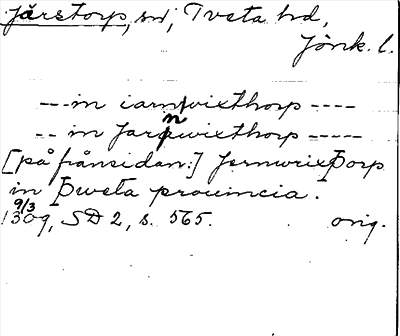 Järstorp, sn, Tveta hd,
Jönk. l.
---in iarnwixthorp ----
-- in Jarnwixthorp -----
[på frånsidan:] JernwrixÞorp
in Þweta prouincia.
9/3
1309, SD 2, s. 565. orig.